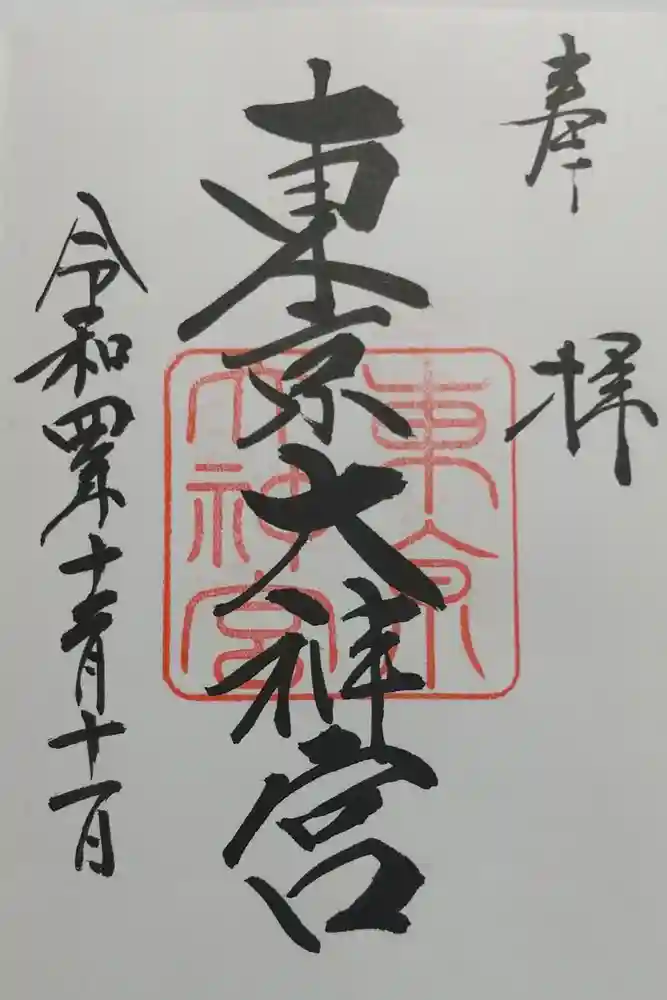 奉拝
東京大神宮
東京
大神宮
令和四年十二月十一日